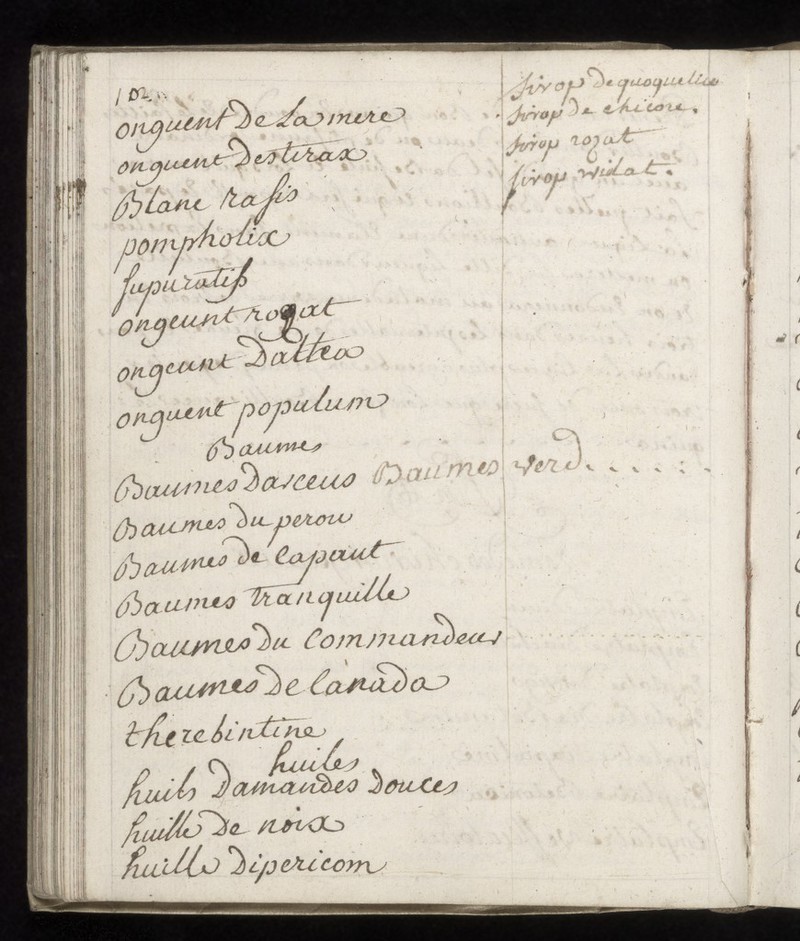 102
onguent De La mere
onguent Destirax
Blanc rasis
pompholix
supuratif
ongeunt rozat
ongeunt Daltea
onguent populum
Baumes
Baumes Darceus Baumes verd. . . . . .
Baumes du perou
Baumes de Capaut
Baumes tranquille
Baumes Du Commandeur
Baumes De Canada
therebintine
huiles
huils Damandes Douces
huille De noix
huille Dipericom
sirop De quoquelico
sirop De chicore.
sirop rozat
sirop violat.